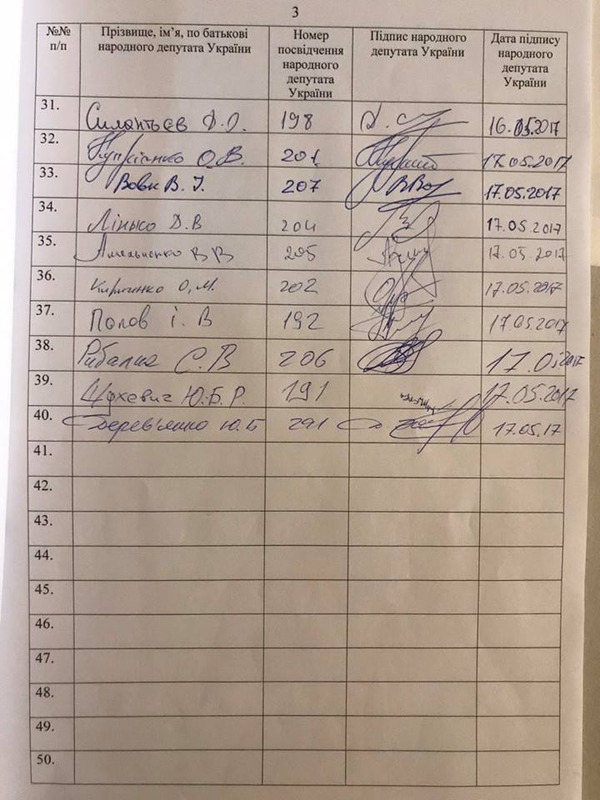 3
№№ п/п Прізвище, ім’я, по батькові народного депутата України Номер посвідчення народного депутата України Підпис народного депутата України Дата підпису народного депутата України
31. Силантьєв Д.О. 198 16.05.2017
32. Купрієнко О.В. 201 17.05.2017
33. Вовк В. І. 207 ВВо 17.05.2017
34. Лінько Д.В 204 17.05.2017
35. Амельченко В В 205 17.05.2017
36. О.М. 202 17.05.2017
37. Попов І. В 192 17.05.2017
38. Рибалка С.В 206 17.05.2017
39. Ю.Б.Р. 191 17.05.2017
40. Дерев'янко Ю.Б 291 17.05.17
41.
42.
43.
44.
45.
46.
47.
48.
49.
50.